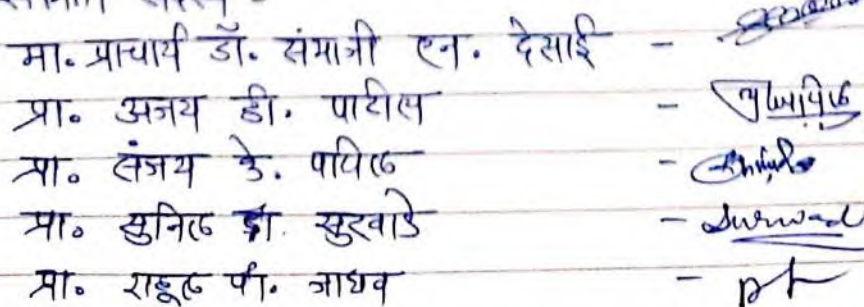 मा. प्राचार्य डॉ. संभाजी एन. देसाई -
प्रा. अजय डी. पाटील -
प्रा. संजय के. पाटिल -
प्रा. सुनिल डी. सुरवाडे - Surwade
प्रा. राहूल पी. जाधव -